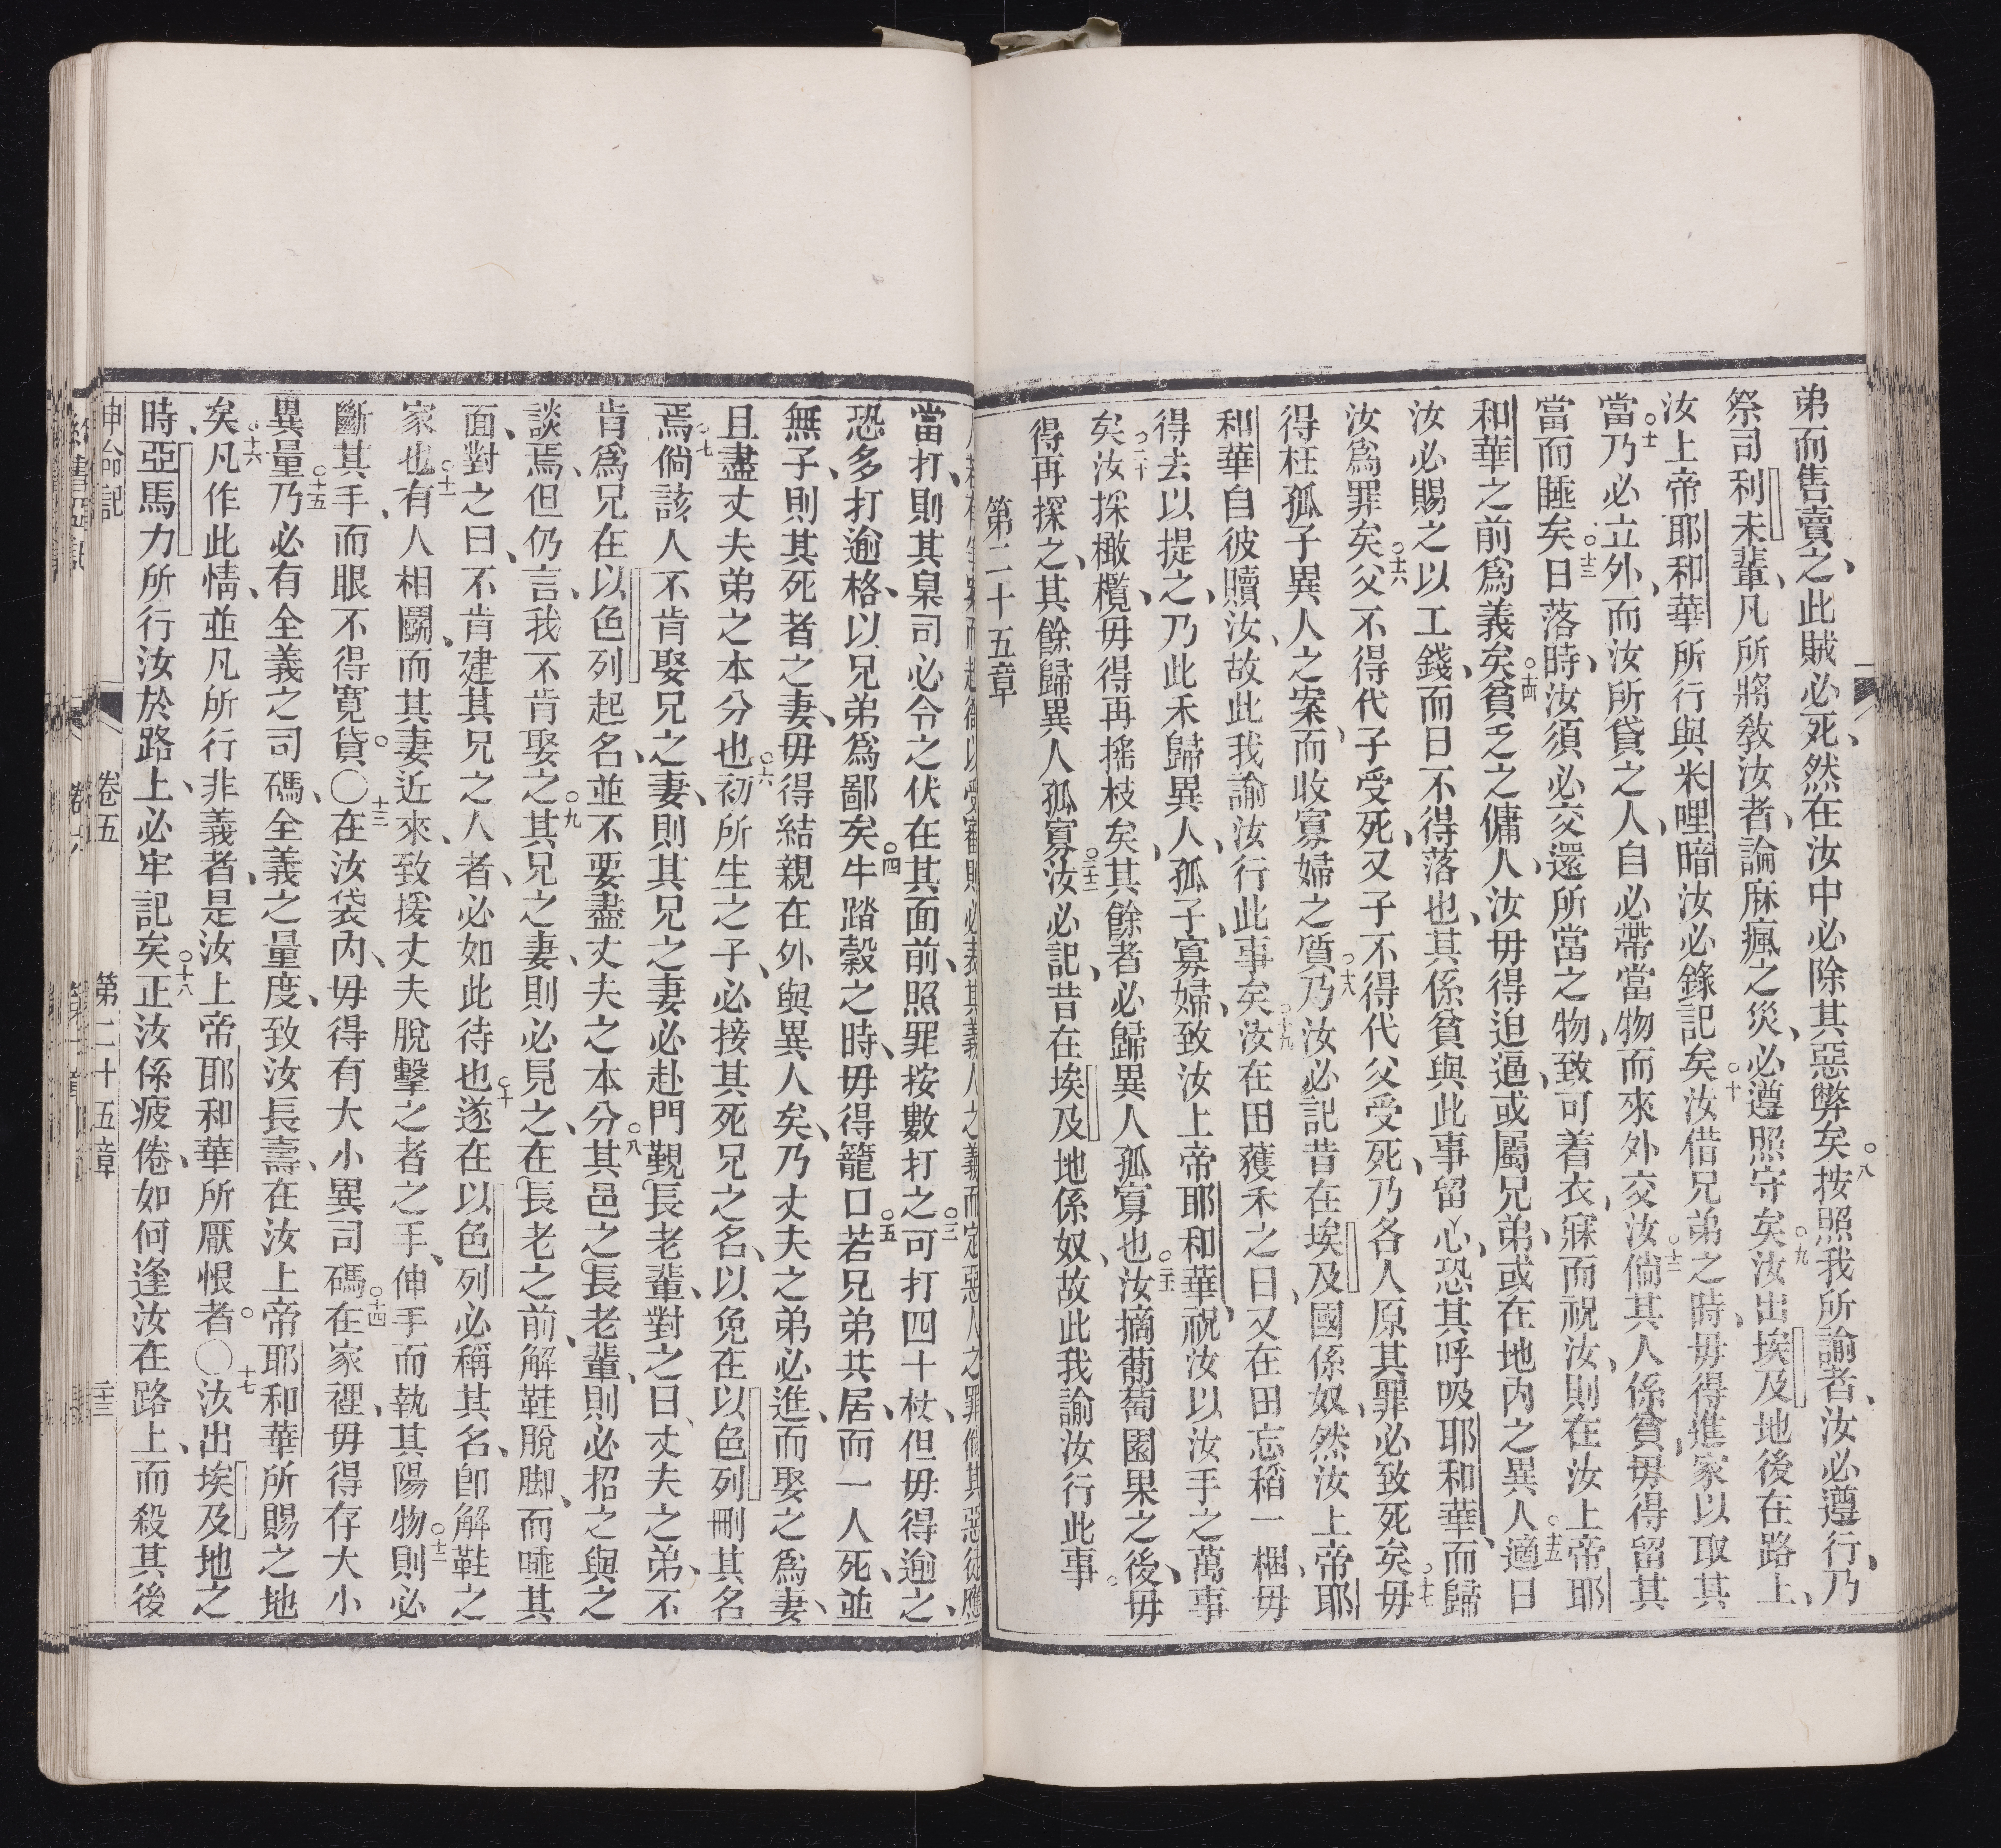 弟而售賣之此賊必死然在汝中必除其惡弊矣○八按照我所諭者汝必遵行乃
祭司利未輩凡所將敎汝者論麻瘋之災必遵照守矣○九汝出埃及地後在路上
汝上帝耶和華所行與米哩暗汝必錄記矣○十汝借兄弟之時毋得進家以取其
當○十乃必立外而汝所貸之人自必帶當物而來外交汝○十二倘其人係貧毋得留其
當而睡矣○十三日落時汝須必交還所當之物致可着衣寐而祝汝則在汝上帝耶
和華之前爲義矣○十四貧乏之傭人汝毋得迫逼或屬兄弟或在地內之異人○十五適日
汝必賜之以工錢而日不得落也其係貧與此事留心恐其呼吸耶和華而歸
汝爲罪矣○十六父不得代子受死又子不得代父受死乃各人原其罪必致死矣○十七毋
得枉孤子異人之案而收寡婦之質○十八乃汝必記昔在埃及國係奴然汝上帝耶
和華自彼贖汝故此我諭汝行此事矣○十九汝在田獲禾之日又在田忘稻一梱毋
得去以提之乃此禾歸異人孤子寡婦致汝上帝耶和華祝汝以汝手之萬事
矣○二十汝採橄欖毋得再搖枝矣其餘者必歸異人孤寡也○二十一汝摘葡萄園果之後毋
得再探之其餘歸異人孤寡○二十二汝必記昔在埃及地係奴故此我諭汝行此事
第二十五章
當打則其臬司必令之伏在其面前照罪按數打之○三可打四十杖但毋得逾之
恐多打逾格以兄弟爲鄙矣○四牛踏穀之時毋得籠口○五若兄弟共居而一人死並
無子則其死者之妻毋得結親在外與異人矣乃丈夫之弟必進而娶之爲妻
且盡丈夫弟之本分也○六初所生之子必接其死兄之名以免在以色列刪其名
焉○七倘該人不肯娶兄之妻則其兄之妻必赴門觀長老輩對之曰丈夫之弟不
肯爲兄在以色列起名並不要盡丈夫之本分○八其邑之長老輩則必招之與之
談焉但仍言我不肯娶之○九其兄之妻則必見之在長老之前解鞋脫脚而唾其
面對之曰不肯建其兄之人者必如此待也○十遂在以色列必稱其名卽解鞋之
家也○十一有人相鬬而其妻近來致援丈夫脫擊之者之手伸手而執其陽物○十二則必
斷其手而眼不得寬貸○十三在汝袋內毋得有大小異司碼○十四在家裡毋得存大小
異量○十五乃必有全義之司碼全義之量度致汝長壽在汝上帝耶和華所賜之地
矣○十六凡作此情並凡所行非義者是汝上帝耶和華所厭恨者○十七汝出埃及地之
時亞馬力所行汝於路上必牢記矣○十八正汝係疲倦如何逢汝在路上而殺其後
申命記 卷五 第二十五章 三三